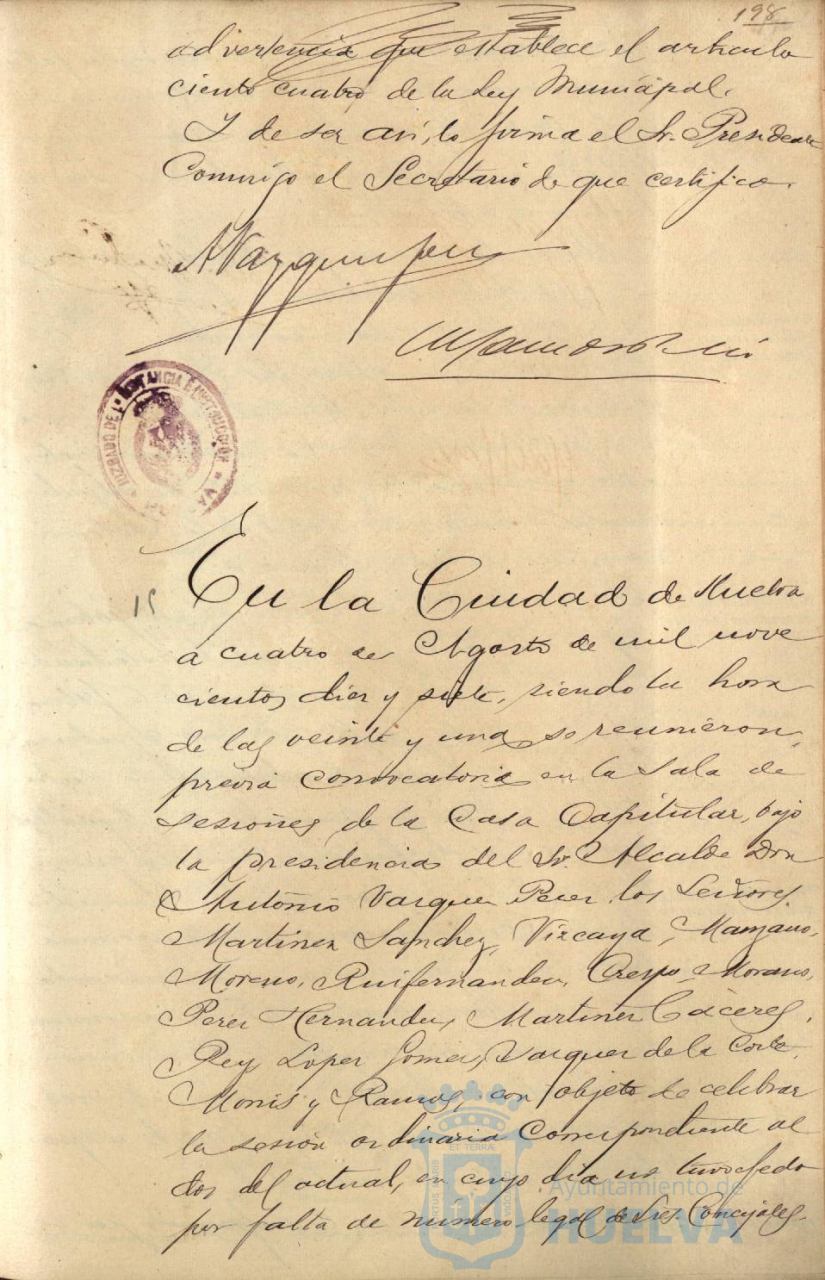 198
advertencia que establece el articulo
ciento cuatro de la Ley Municipal.
Y de ser así, lo firma el Sr. Presidente
Conmigo el Secretario de que certifico.
JUZGADO DE 1ª INSTANCIA E INSTRUCCIÓN
15
En la Ciudad de Huelva
a cuatro de Agosto de mil nove
cientos diez y siete, siendo la hora
de las veinte y una se reunieron,
previa convocatoria en la Sala de
sesiones de la Casa Capitular, bajo
la presidencia del Sr. Alcalde Don
Antonio Vazquez Perez los Señores
Martinez Sanchez, Vizcaya, Manzano,
Moreno, Ruifernandez, Crespo, Morano,
Perez Hernandez, Martinez Cáceres,
Rey, Lopez Gomez, Vazquez de la Corte,
Monís y Ramos, con objeto de celebrar
la sesión ordinaria correspondiente al
dos del actual, en cuyo día no tuvo efecto
por falta de número legal de Sres. Concejales.
Ayuntamiento de
HUELVA